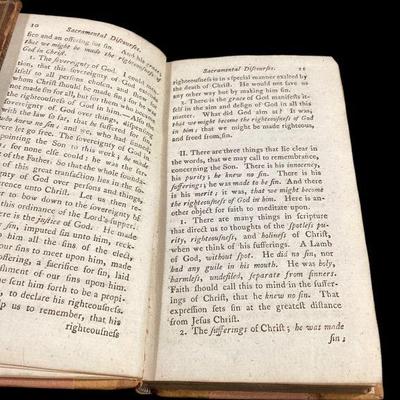 10 Sacramental Discourſes.
fice and an offering for ſin. And
that we might be made the righteouſneſs of
God in Chriſt.
1. The ſovereignty of God. I could
that this ſovereignty of God
itſelf to all perſons choſen, and ſhew for
whom Chriſt ſhould be made ſin. He was not
made ſin for all, but for them who be
who knew no ſin;
vereignty of God over things, diſpenſing
with the law ſo far, that he ſuffered
were let go free. The ſovereignty of God in
pointing the Son to this work; he made
for none elſe could; he was the ſer-
of the Father. So that the whole founda-
of this great tranſaction lies in the
ſovereignty of God over perſons and things,
ference unto Chriſt. Let us then
ber to bow down to the ſovereignty of
this ordinance of the Lord's ſupper.
ere is the juſtice of God. He made
ſin, imputed ſin unto him, reck-
to him all the ſins of the elect,
our ſins to meet upon him, made
offering, a ſacrifice for ſin, laid
ſhment of our ſins upon him.
he ſent him forth to be a propi-
to declare his righteouſneſs.
p us to remember, that his
righteouſneſs
Sacramental Diſcourſes. 11
righteouſneſs is in a ſpecial manner exalted by
the death of Chriſt. He would not ſave us
any other way but by making him ſin.
3. There is the grace of God manifeſts it-
ſelf in the aim and deſign of God in all this
matter. What did God aim at? It was,
that we might become the righteouſneſs of God
in him; that we might be made righteous,
and freed from ſin.
II. There are three things that lie clear in
the words, that we may call to remembrance,
concerning the Son. There is his innocency,
his purity; he knew no ſin. There is his
ſufferings; he was made to be ſin. And there
is his merit; it was, that we might become
the righteouſneſs of God in him. Here is an-
other object for faith to meditate upon.
1. There are many things in ſcripture
that direct us to thoughts of the ſpotleſs pu-
rity, righteouſneſs, and holineſs of Chriſt,
when we think of his ſufferings. A Lamb
of God, without ſpot. He did no ſin, nor
had any guile in his mouth. He was holy,
harmleſs, undefiled, ſeparate from ſinners.
Faith ſhould call this to mind in the ſuffer-
ings of Chriſt, that he knew no ſin. That
expreſſion ſets ſin at the greateſt diſtance
from Jeſus Chriſt.
2. The ſufferings of Chriſt; he was made
ſin;